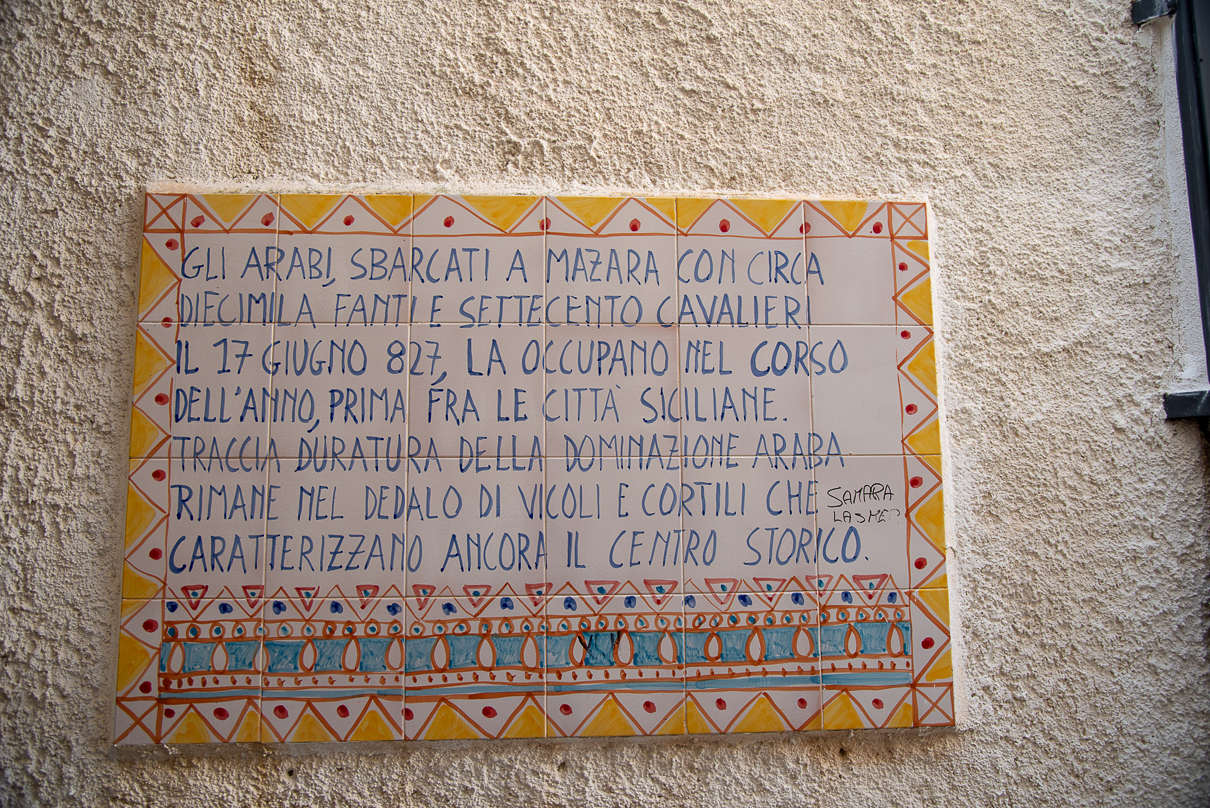 GLI ARABI, SBARCATI A MAZARA CON CIRCA
DIECIMILA FANTI E SETTECENTO CAVALIERI
IL 17 GIUGNO 827, LA OCCUPANO NEL CORSO
DELL'ANNO, PRIMA FRA LE CITTÀ SICILIANE.
TRACCIA DURATURA DELLA DOMINAZIONE ARABA
RIMANE NEL DEDALO DI VICOLI E CORTILI CHE
CARATTERIZZANO ANCORA IL CENTRO STORICO.
SAMARA